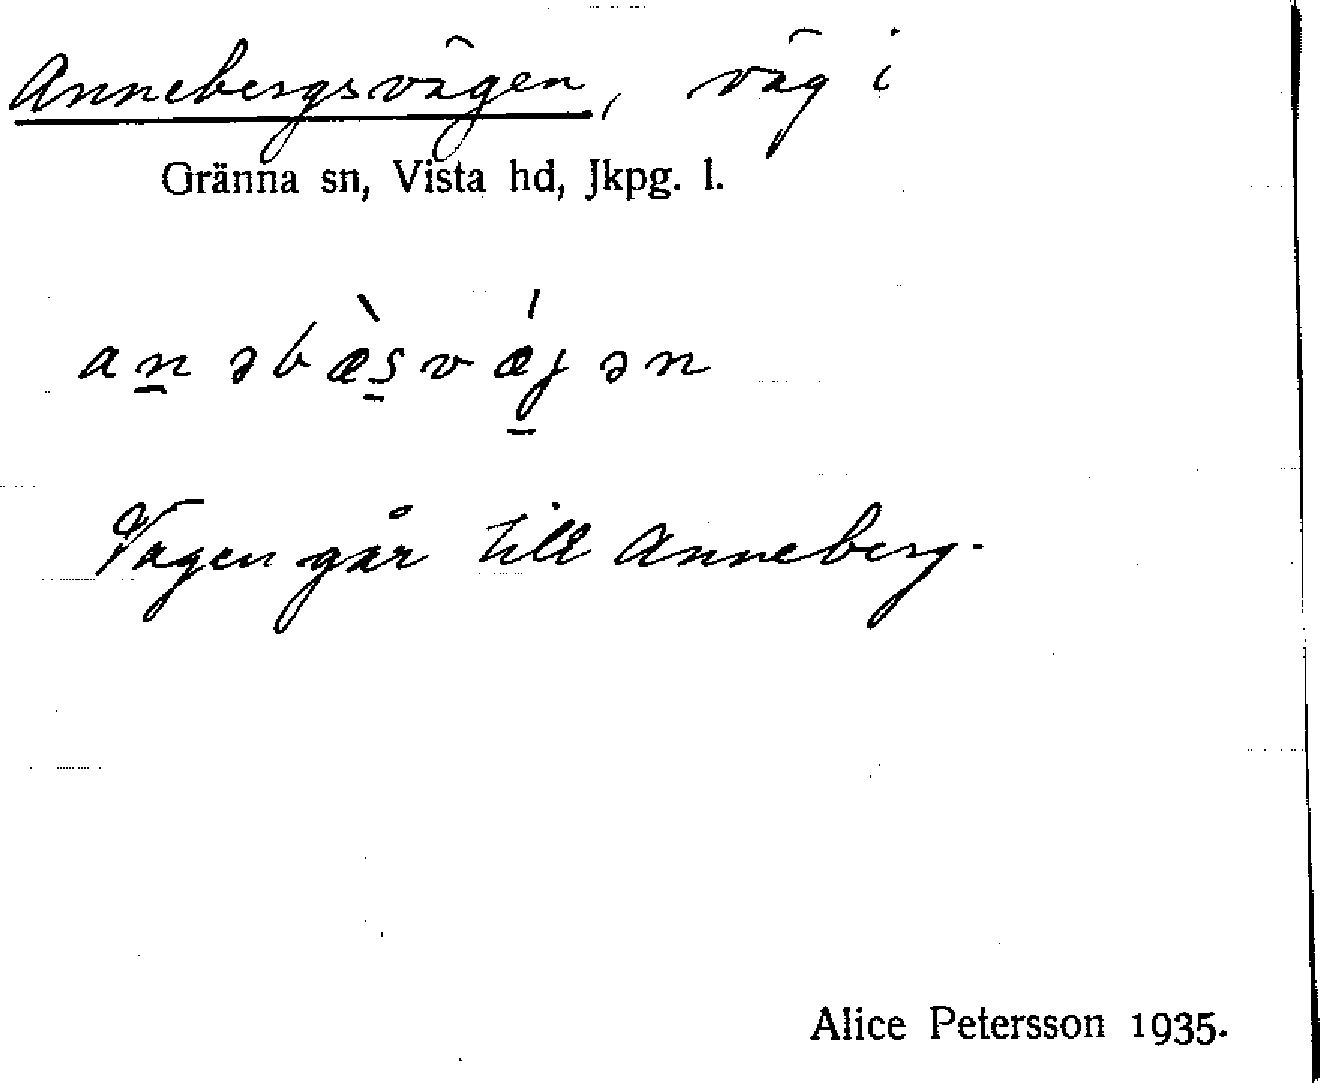 Annebergsvägen, väg i
Gränna sn, Vista hd, Jkpg. l.
an̲əbæ̀s̲vǽȷ̲ən
Vägen går till Anneberg.
Alice Petersson 1935.